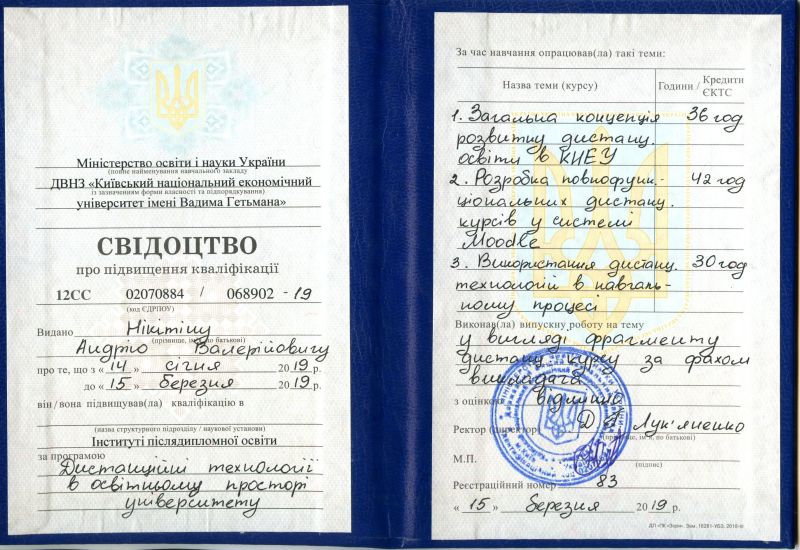 Міністерство освіти і науки України
(повне найменування навчального закладу
ДВНЗ «Київський національний економічний
із зазначенням форми власності та підпорядкування)
університет імені Вадима Гетьмана»
СВІДОЦТВО
про підвищення кваліфікації
12СС 02070884 / 068902 -19
(код ЄДРПОУ)
Видано Нікітіну
(прізвище, ім'я, по батькові)
Андрію Валерійовичу
про те, що з «14» січня 2019 р.
до «15» березня 2019 р.
він/вона підвищував(ла) кваліфікацію в
(назва структурного підрозділу / наукової установи)
Інституті післядипломної освіти
за програмою
Дистанційні технології
в освітньому просторі
університету
За час навчання опрацював(ла) такі теми:
Назва теми (курсу) Години / Кредити ЄКТС
1. Загальна концепція 36 год
розвитку дистанц.
освіти в КНЕУ
2. Розробка повнофунк- 42 год
ціональних дистанц.
курсів у системі
Moodle
3. Використання дистанц. 30 год
технологій в навчаль-
ному процесі
Виконав(ла) випускну роботу на тему
у вигляді фрагменту
дистанц. курсу за фахом
викладача
з оцінкою відмінно
Ректор (директор) Д Г Лук'яненко
(прізвище, ім'я, по батькові)
М.П.
(підпис)
Реєстраційний номер 83
«15» березня 2019 р.
ДП «ПК «Зоря». Зам.